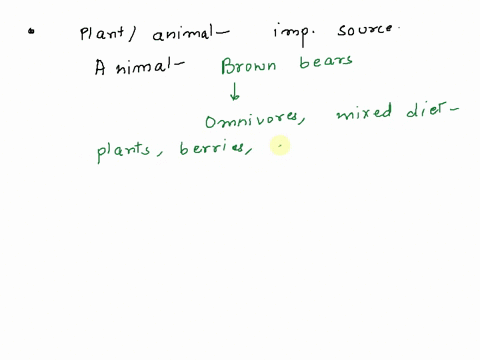 Plant/ animal- imp. source.
Animal- Brown bears
Omnivores, mixed diet-
plants, berries,